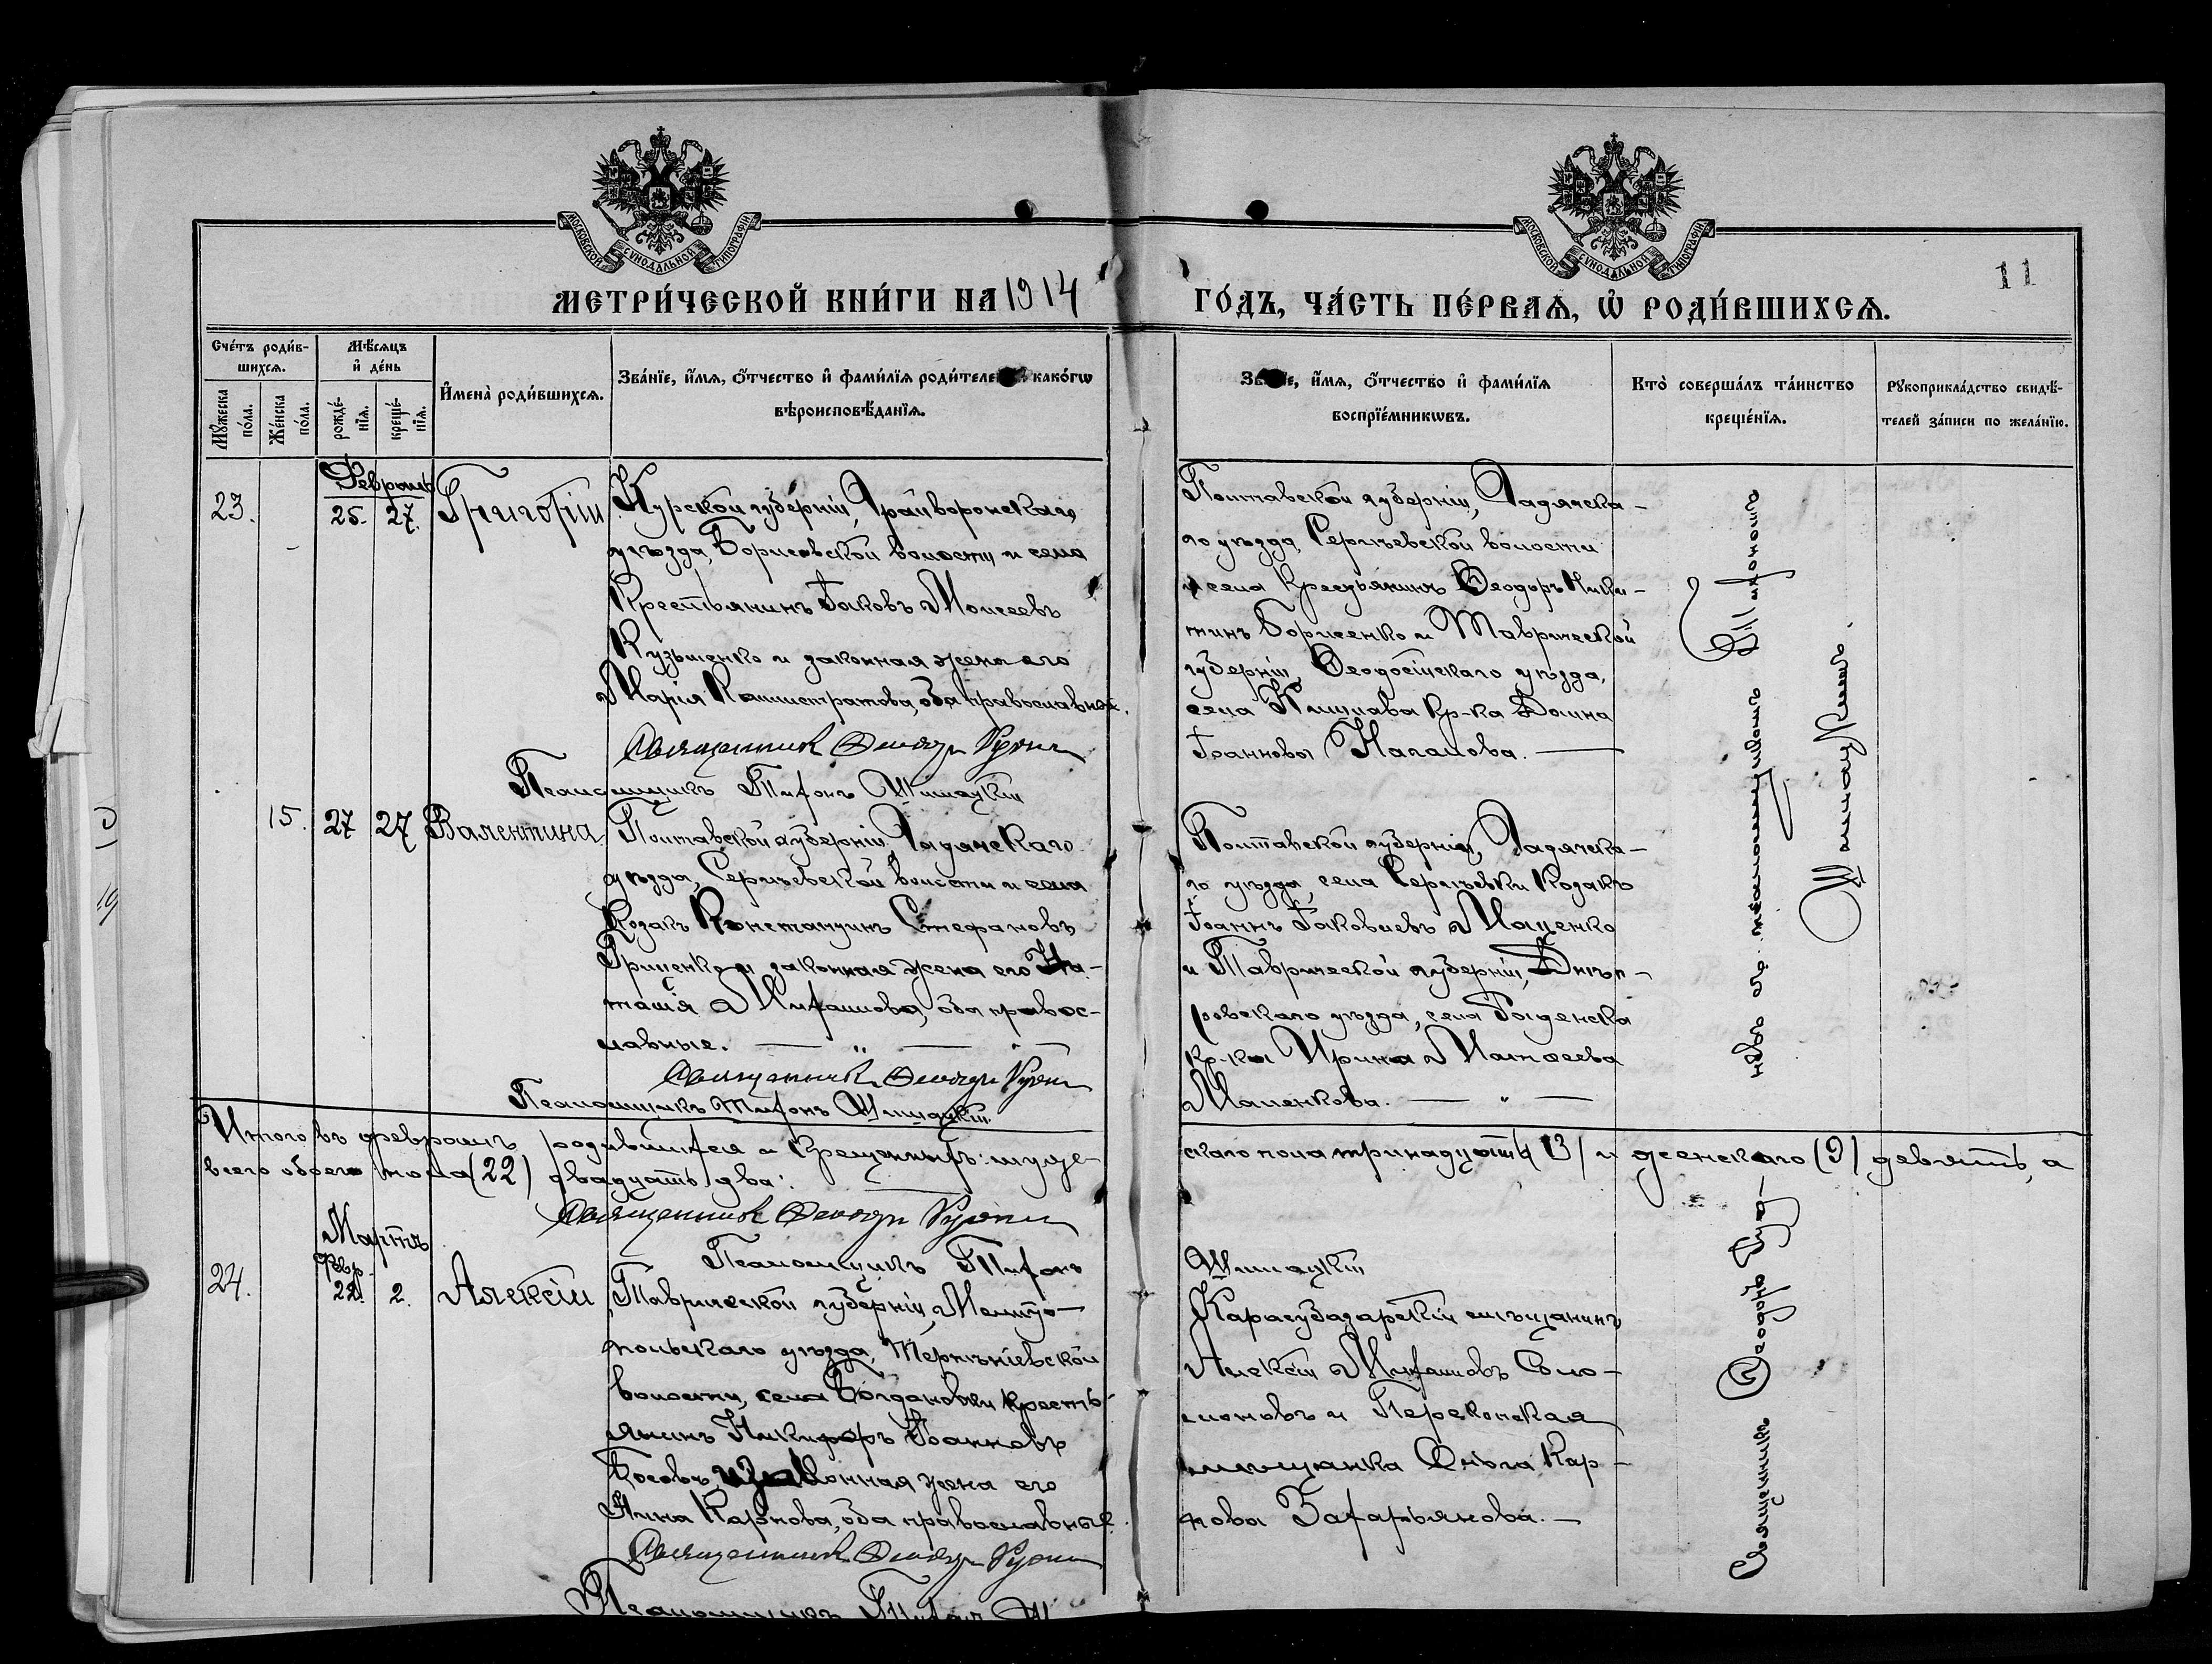 МОСКОВСКОЙ СѴНОДАЛЬНОЙ ТИПОГРАФІИ
МОСКОВСКОЙ СѴНОДАЛЬНОЙ ТИПОГРАФІИ
11
МЕТРИ́ЧЕСКОЙ КНИ́ГИ НА 1914 ГО́ДЪ, ЧА́СТЬ ПЕ́РВАѦ, Ѡ РОДИ́ВШИХСѦ.
Сче́тъ роди́в-
шихсѧ.
Мꙋ́жеска по́ла.
Же́нска по́ла.
Мѣ́сѧцъ
и҆ де́нь
рожде́-
нїѧ.
креще́-
нїѧ.
И҆мена̀ роди́вшихсѧ.
Зва́нїе, и҆́мѧ, ѻ҆́тчество и҆ фами́лїѧ роди́теле како́гѡ
вѣроисповѣ́данїѧ.
и҆́мѧ, ѻ҆́тчество и҆ фами́лїѧ
воспрїе́мникѡвъ.
Кто̀ соверша́лъ та́инство
креще́нїѧ.
Рꙋкоприкла́дство свидѣ́-
телей за́писи по жела́нїю.
23.
Февраль
25. 27.
Григорій
Курской губерніи, Грайворонскаго
уѣзда, Борисовской волости и села
Крестьянинъ Іаковъ Моисеевъ
Кузьменко и законная жена его
Марія Каллистратова, оба православные.
Священникъ Ѳеодоръ
Псаломщикъ Тихонъ Шишацкій
Полтавской губерніи, Гадячска-
го уѣзда, Сергѣевской волости
и села Крестьянинъ Ѳеодоръ Ники-
тинъ Борисенко и Таврической
губерніи, Ѳеодосійскаго уѣзда,
села кр-ка Домна
Іоаннова
15.
27 27
Валентина
Полтавской губерніи, Гадячскаго
уѣзда, Сергѣевской волости и села
Козакъ Константинъ Стефановъ
Гриценко и законная жена его На-
талія Михаилова, оба правос-
лавные. — " —
Священникъ Ѳеодоръ
Псаломщикъ Тихонъ Шишацкій
Полтавской губерніи, Гадячска-
го уѣзда, села Сергѣевки Козакъ
Іоаннъ Іаковлевъ Маценко
и Таврической губерніи, Днѣп-
ровскаго уѣзда, села
кр-ка Ирина Матѳеева
Маленкова. — " —
Итого въ февралѣ родившихся и крещенныхъ: муже-
скаго пола тринадцать (13) и женскаго (9) девять, а
всего обоего пола (22) двадцать два.
Священникъ Ѳеодоръ
Псаломщикъ Тихонъ
Шишацкій
Мартъ
24.
Февр.
22. 2.
Алексій
Таврической губерніи, Мелито-
польскаго уѣзда, Терпѣніевской
волости, села Богдановки кресть-
янинъ Никифоръ Іоанновъ
Косовъ законная жена его
Анна Карпова, оба православные.
Священникъ Ѳеодоръ
Псаломщикъ Тихонъ Ш
Карасубазарскій мѣщанинъ
Алексій Михаиловъ Соло-
моновъ и Перекопская
мѣщанка Ольга Кар-
пова Захарьянова. —
Священникъ Ѳеодоръ Руд-
невъ съ псаломщикомъ Тихономъ
Шишацкимъ.